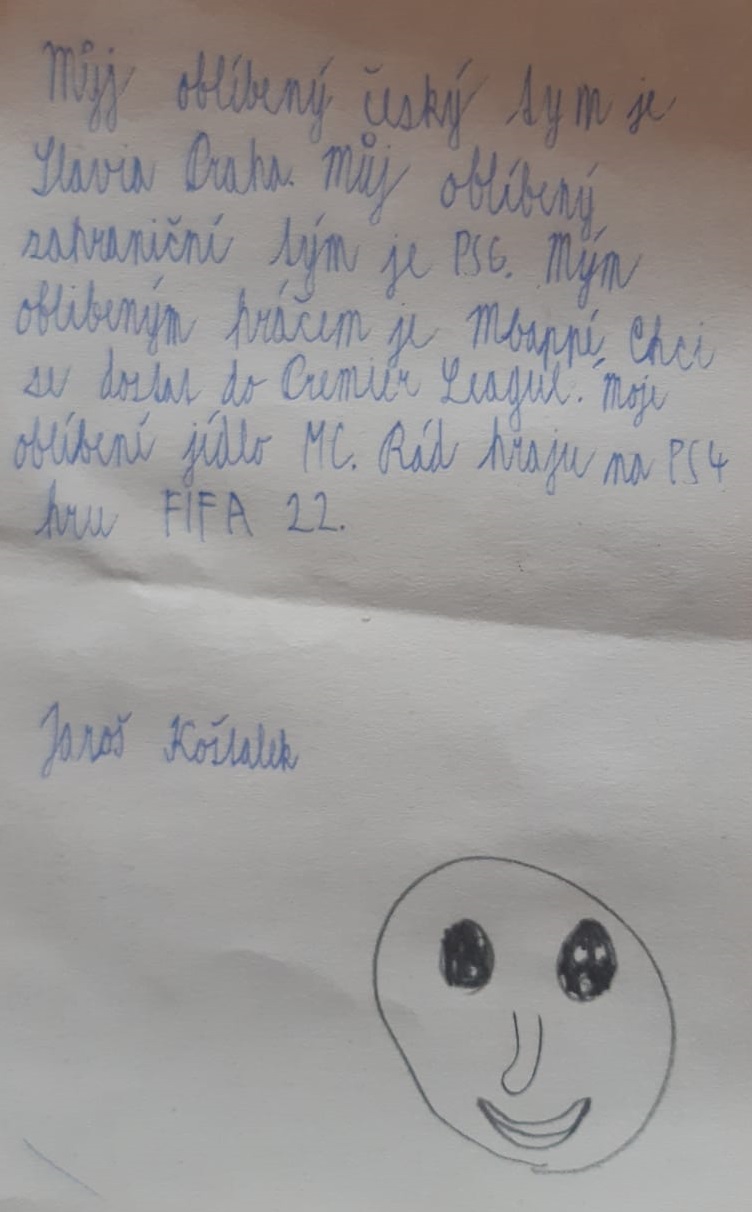 Můj oblíbený český tym je
Slavia Praha. Můj oblíbený
zahraniční tým je PSG. Mým
oblibeným hráčem je Mbappé. Chci
se dostat do Premier League. Moje
oblíbení jídlo MC. Rád hraju na PS4
hru FIFA 22.
Jaroš Košťálek